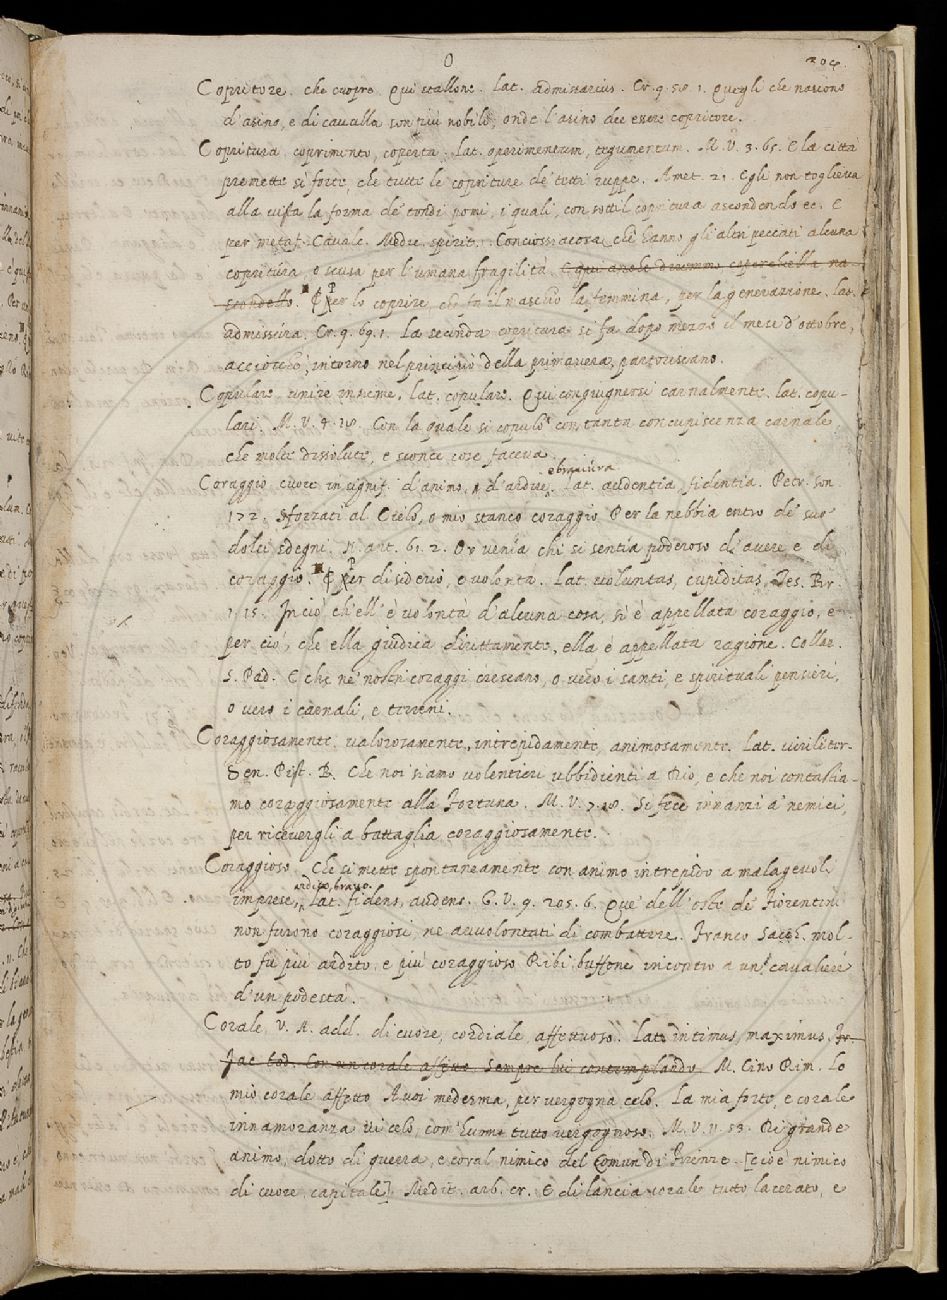 O
304.
Copritore. che cuopre. Qui stallone. Lat. admissarius. Cr. 9. 58. 1. Quegli che nascono
d'asino, e di cavalla son più nobili, onde l'asino dee essere copritore.
Copritura coprimento, coperta. Lat. operimentum, tegumentum. M. V. 3. 65. E la città
premette sì forte, che tutte le copriture de' tetti ruppe. Amet. 21. Egli non toglieva
alla vista la forma de' tondi pomi, i quali, con sottil copritura ascondendo ec. E
per metaf. Cavalc. Medic. spirit. Conciossiacosa che hanno gli altri peccati alcuna
copritura, o scusa per l'umana fragilità. E qui anche diremmo coperchiella na-
scondello. P Per lo coprire, che fa il maschio la femmina, per la generazione. lat.
admissura. Cr. 9. 69. 1. La seconda copritura si fa dopo mezzo il mese d'ottobre,
acciocchè intorno nel principio della primavera, partoriscano.
Copulare unire insieme. lat. copulare. Qui congiugnersi carnalmente. lat. copu-
lari. M. V. 4. 18. Con la quale si copulò con tanta concupiscenza carnale
che molte dissolute, e sconce cose faceva.
Coraggio cuore in signif. d'animo, d'ardire, bravura. Lat. audentia, fidentia. Petr. son
172. Sforzati al Cielo, o mio stanco coraggio Per la nebbia entro de' suo
dolci sdegni. N. ant. 61. 2. Or venia chi si sentia poderoso d'avere, e di
coraggio. P Per disiderio, e volontà. Lat. voluntas, cupiditas. Tes. Br.
1. 15. In ciò ch'ell'è volontà d'alcuna cosa, sì è appellata coraggio, e
per ciò, che ella giudica dirittamente, ella è appellata ragione. Collaz.
S. Pad. E che ne' nostri coraggi crescano, o vero i santi, e spirituali pensieri,
o vero i carnali, e terreni.
Coraggiosamente. valorosamente, intrepidamente, animosamente. Lat. viriliter.
Sen. Pist. B. Che noi siamo volentieri ubbidienti a Dio, e che noi contastia-
mo coraggiosamente alla Fortuna. M. V. 7. 18. Si fece innanzi a' nemici,
per ricevergli a battaglia coraggiosamente.
Coraggioso. Che si mette spontaneamente con animo intrepido a malagevoli
imprese, ardito, bravo. Lat. fidens, audens. G. V. 9. 205. 6. Que' dell'oste de' Fiorentini
non furono coraggiosi, ne avvolontati di combattere. Franco Sacch. mol-
to fu più ardito, e più coraggioso Ribi buffone incontro a un cavaliere
d'un podestà.
Corale, V. A. add. di cuore, cordiale, affettuoso. Lat. intimus, maximus. Fr.
Jac. tod. Con un corale affetto Sempre lui contemplando. M. Cino Rim. Lo
mio corale affetto A voi medesma, per vergogna celo. La mia forte, e corale
innamoranza vi celo, com' huom tutto vergognoso. M. V. 11. 53. Di grande
animo, dotto di guerra, e coral nimico del Comun di Firenze. [cioè nimico
di cuore, capitale]. Medit. arb. cr. E di lancia corale tutto lacerato, e